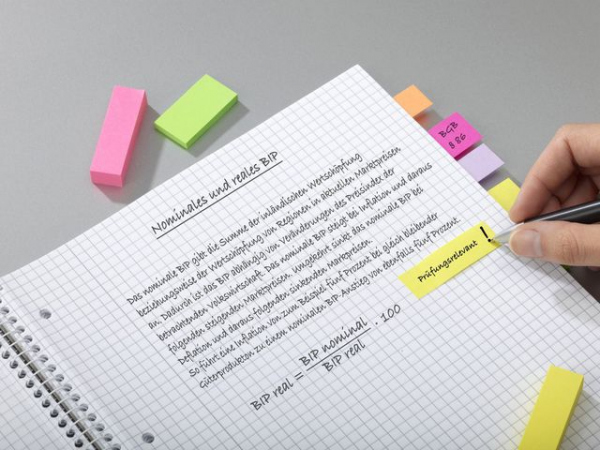 Nominales und reales BIP
Das nominale BIP gibt die Summe der inländischen Wertschöpfung
beziehungsweise der Wertschöpfung von Regionen in aktuellen Marktpreisen
an. Dadurch ist das BIP abhängig von Veränderungen des Preisindex der
betrachtenden Volkswirtschaft. Das nominale BIP steigt bei Inflation und daraus
folgenden steigenden Marktpreisen. Umgekehrt sinkt das nominale BIP bei
Deflation und daraus folgenden sinkenden Marktpreisen.
So führt eine Inflation von zum Beispiel fünf Prozent bei gleich bleibender
Güterprodukton zu einem nominalen BIP-Anstieg von ebenfalls fünf Prozent.
BIP real = BIP nominal / BIP real · 100
Prüfungsrelevant !
BGB
§ 86